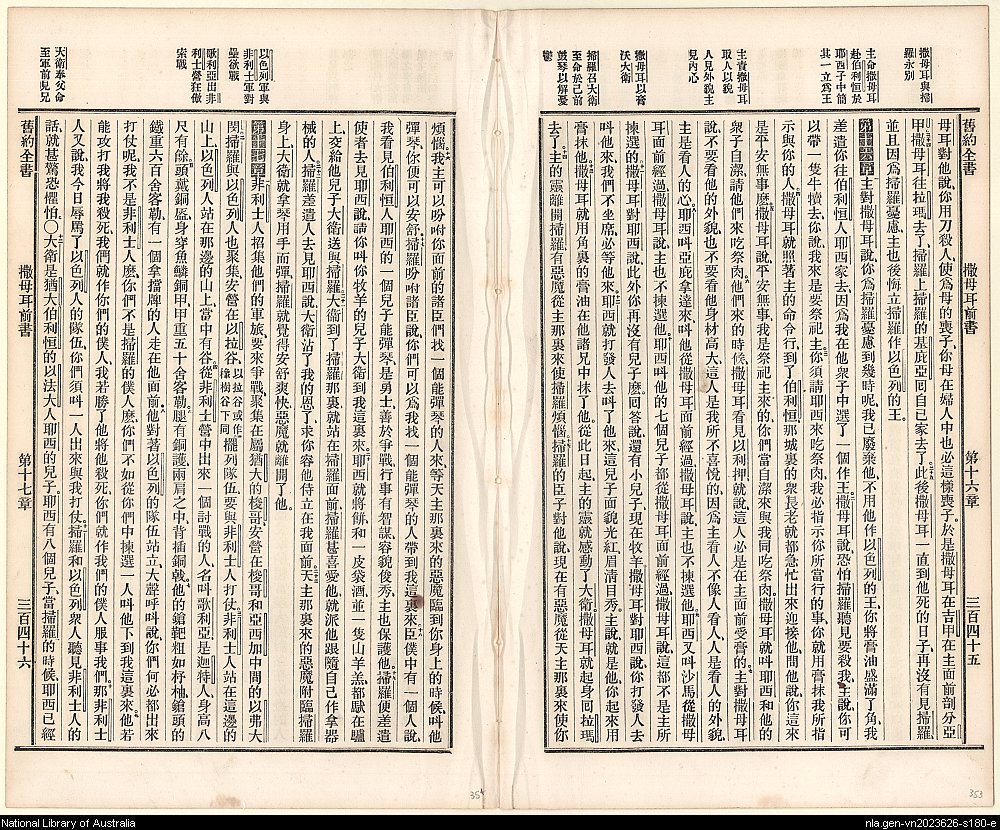 撒母耳與掃
羅永別
主命撒母耳
赴伯利恒於
耶西子中簡
其一立為王
主責撒母耳
取人以貌
人見外貌主
見內心
撒母耳以膏
沃大衛
掃羅召大衛
至命於己前
鼓琴以解憂
鬱
舊約全書
撒母耳前書
第十六章
三百四十五
母耳對他說、你用刀殺人、使婦人喪子、你母在婦人中也必這樣喪子。於是撒母耳在吉甲在主面前剖分亞
甲。撒母耳往拉瑪去了、掃羅上掃羅的基庇亞回自己家去了。此後撒母耳一直到他死的日子、再沒有見掃羅
並且因為掃羅憂慮、主也後悔立掃羅作以色列的王。
第十六章主對撒母耳說、你為掃羅憂慮到幾時呢、我已廢棄他、不用他作以色列的王、你將膏油盛滿了角、我
差遣你往伯利恒人耶西家去、因為我在他衆子中選了一個作王。撒母耳說、恐怕掃羅聽見要殺我、主說、你可
以帶一隻牛犢去、你說、我來是要祭祀主。你須請耶西來吃祭肉、我必指示你所當行的事、你就用膏抹我所指
示與你的人。撒母耳就照著主的命令、行到了伯利恒、那城裏的衆長老就都急忙出來迎接他、問他說、你這來
是平安無事麼。撒母耳說、平安無事、我是祭祀主來的、你們當自潔、來與我同吃祭肉。撒母耳就叫耶西和他的
衆子自潔、請他們來吃祭肉。他們來的時候、撒母耳看見以利押、就說、這人必是在主面前受膏的。主對撒母耳
說、不要看他的外貌、也不要看他身材高大、這人是我所不喜悅的、因為主看人不像人看人、人是看人的外貌、
主是看人的心。耶西叫亞庇拿達來、叫他從撒母耳面前經過、撒母耳說、主也不揀選他。耶西又叫沙馬從撒母
耳面前經過、撒母耳說、主也不揀選他。耶西叫他的七個兒子都從撒母耳面前經過、撒母耳說、這都不是主所
揀選的。撒母耳對耶西說、此外你再沒有兒子麼、回答說、還有小兒子現在牧羊、撒母耳對耶西說、你打發人去
叫他來、我們不坐席、必等他來。耶西就打發人去叫了他來、這兒子面貌光紅、眉清目秀。主說、就是他、你起來用
膏抹他。撒母耳就用角裏的膏油、在他諸兄中抹了他。從此日起、主的靈就感動了大衛、撒母耳就起身回拉瑪
去了。主的靈離開掃羅、有惡魔從主那裏來、使掃羅煩惱。掃羅的臣子對他說、現在有惡魔從天主那裏來、使你
煩惱。我主可以吩咐你面前的諸臣們、找一個能彈琴的人來、等天主那裏來的惡魔臨到你身上的時候、叫他
彈琴、你便可以安舒。掃羅吩咐諸臣說、你們可以為我找一個能彈琴的人帶到我這裏來。臣僕中有一個人說、
我看見伯利恒人耶西的一個兒子、能彈琴、是勇士、善於爭戰、行事有智謀、容貌俊秀、主也保護他。掃羅便差遣
使者去見耶西說、請你叫你牧羊的兒子大衛到我這裏來。耶西就將餅、和一皮袋酒、並一隻山羊羔、都馱在驢
上、交給他兒子大衛送與掃羅。大衛到了掃羅那裏、就站在掃羅面前、掃羅甚喜愛他、就派他跟隨自己作拿器
械的人。掃羅差遣人去見耶西說、大衛沾了我的恩了、求你容他侍立在我面前。天主那裏來的惡魔附臨掃羅
身上、大衛就拿琴用手而彈、掃羅就覺得安舒爽快、惡魔就離開了他。
第十七章非利士人招集他們的軍旅、要來爭戰、聚集在屬猶大的梭哥、安營在梭哥和亞西加中間的以弗大
閔。掃羅與以色列人也聚集、安營在以拉谷、以拉谷或作橡樹谷下同擺列隊伍、要與非利士人打仗。非利士人站在這邊的
山上、以色列人站在那邊的山上、當中有谷。從非利士營中出來一個討戰的人、名叫歌利亞、是迦特人、身高八
尺有餘。頭戴銅盔、身穿魚鱗銅甲、甲重五十舍客勒。腿有銅護、兩肩之中背插銅戟。他的鎗靶粗如杼柚、鎗頭的
鐵重六百舍客勒、有一個拿擋牌的人走在他面前。他對著以色列的隊伍站立、大聲呼叫說、你們何必都出來
打仗呢、我不是非利士人麼、你們不是掃羅的僕人麼、你們不如從你們中揀選一人、叫他下到我這裏來。他若
能攻打我將我殺死、我們就作你們的僕人、我若勝了他、將他殺死、你們就作我們的僕人服事我們。那非利士
人又說、我今日辱罵了以色列人的隊伍、你們須叫一人出來與我打仗。掃羅和以色列衆人聽見非利士人的
話、就甚驚恐懼怕。〇大衛是猶大伯利恒的以法大人耶西的兒子、耶西有八個兒子、當掃羅的時候、耶西已經
舊約全書
撒母耳前書
第十七章
三百四十六
以色列軍與
非利士軍對
壘欲戰
歌利亞出非
利士營狂傲
索戰
大衛奉父命
至軍前見兄
354
353
National Library of Australia
nla.gen-vn2023626-s180-e